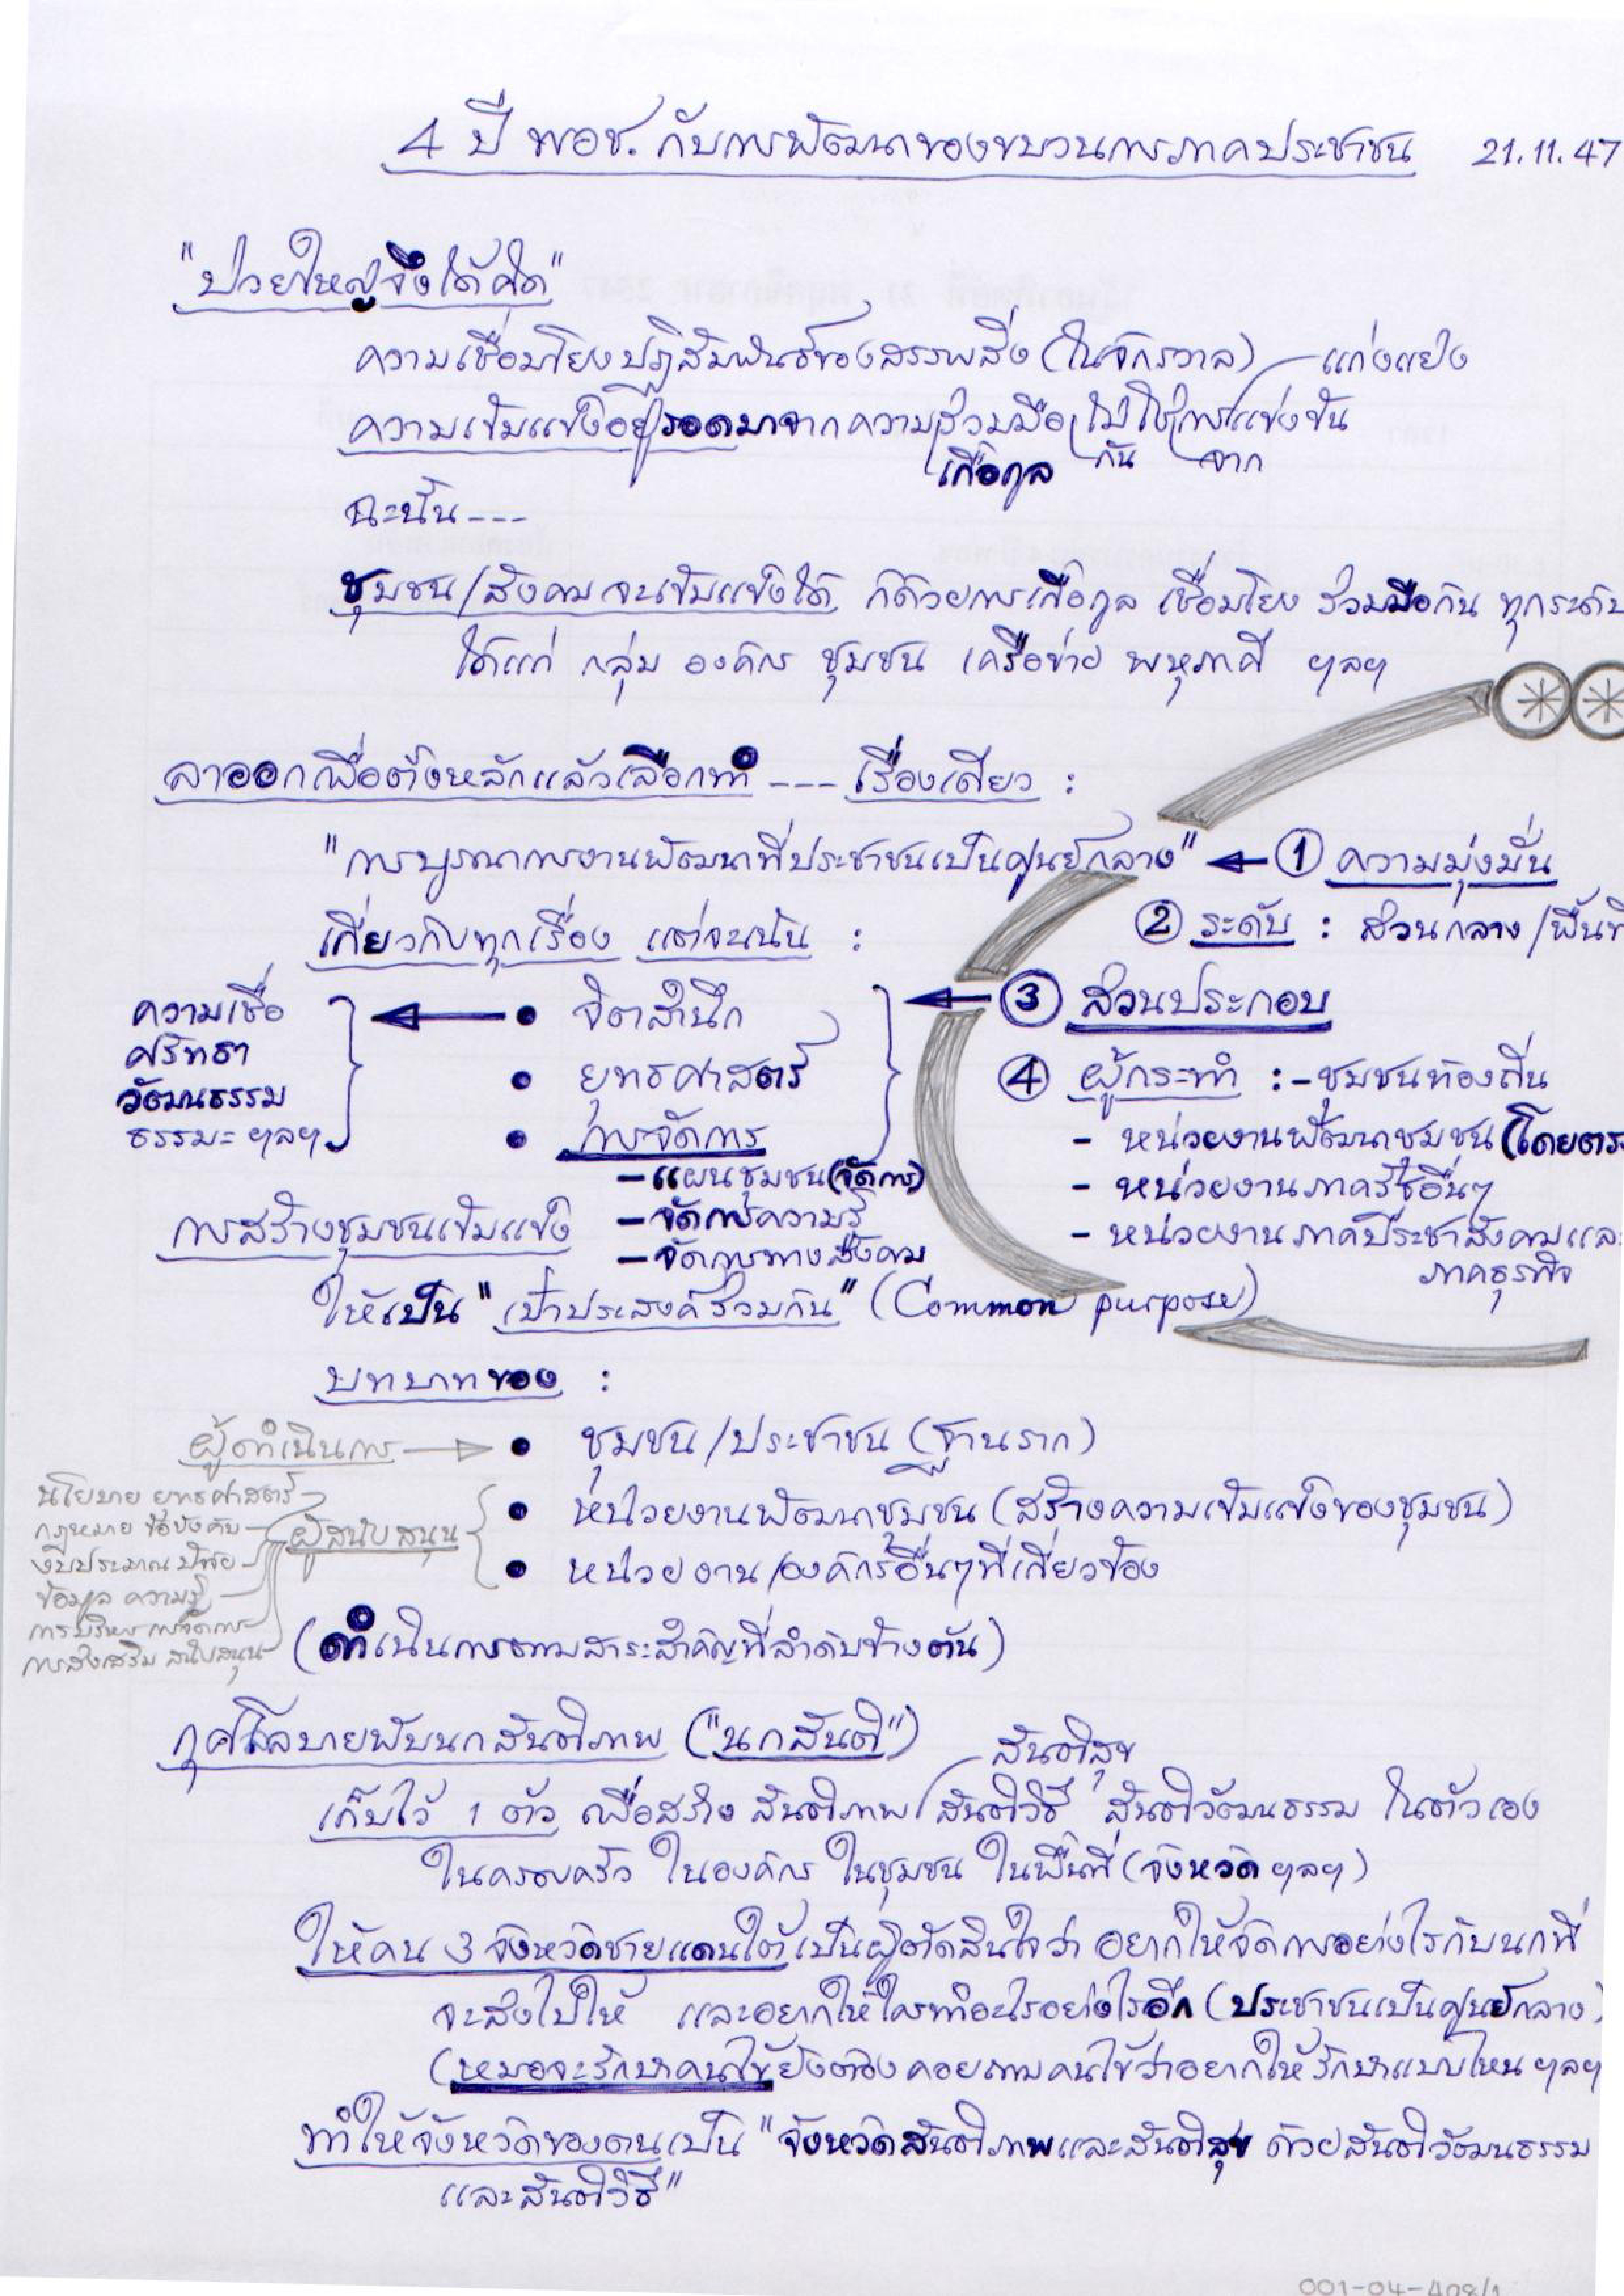 4 ปี พอช. กับการพัฒนาของขบวนการภาคประชาชน 21.11.47
"ป่วยใหญ่จึงได้คิด"
ความเชื่อมโยงปฏิสัมพันธ์ของสรรพสิ่ง (ในจักรวาล) แก่งแย่ง
ความเข้มแข็งอยู่รอดมาจากความร่วมมือ ไม่ใช่การแข่งขัน
เกื้อกูล กัน จาก
ฉะนั้น ---
ชุมชน/สังคม จะเข้มแข็งได้ ก็ด้วยการเกื้อกูล เชื่อมโยง ร่วมมือกัน ทุกระดับ
ได้แก่ กลุ่ม องค์กร ชุมชน เครือข่าย พหุภาคี ฯลฯ
ลาออกเพื่อตั้งหลักแล้วเลือกทำ ---- เรื่องเดียว :
"การบูรณาการงานพัฒนาที่ประชาชนเป็นศูนย์กลาง" ① ความมุ่งมั่น
② ระดับ : ส่วนกลาง/พื้นที่
เกี่ยวกับทุกเรื่อง แต่จะเน้น :
③ ส่วนประกอบ
ความเชื่อ
ศรัทธา
วัฒนธรรม
ธรรมะ ฯลฯ
• จิตสำนึก
• ยุทธศาสตร์
• การจัดการ
- แผนชุมชน (จัดการ)
- จัดการความรู้
- จัดการทางสังคม
④ ผู้กระทำ : - ชุมชนท้องถิ่น
- หน่วยงานพัฒนาชุมชน (โดยตรง
- หน่วยงานภาครัฐอื่นๆ
- หน่วยงานภาคประชาสังคมและ
ภาคธุรกิจ
การสร้างชุมชนเข้มแข็ง
ให้เป็น "เป้าประสงค์ร่วมกัน" (Common purpose)
บทบาทของ :
ผู้ดำเนินการ • ชุมชน/ประชาชน (ฐานราก)
• หน่วยงานพัฒนาชุมชน (สร้างความเข้มแข็งของชุมชน)
ผู้สนับสนุน
• หน่วยงาน/องค์กรอื่นๆที่เกี่ยวข้อง
นโยบาย ยุทธศาสตร์
กฎหมาย ข้อบังคับ
งบประมาณ ปัจจัย
ข้อมูล ความรู้
การบริหาร การจัดการ
การส่งเสริม สนับสนุน
(ดำเนินการตามสาระสำคัญที่ลำดับข้างต้น)
กุศโลบายพับนกสันติภาพ ("นกสันติ")
สันติสุข
เก็บไว้ 1 ตัว เพื่อสร้าง สันติภาพ สันติวิธี สันติวัฒนธรรม ในตัวเอง
ในครอบครัว ในองค์กร ในชุมชน ในพื้นที่ (จังหวัด ฯลฯ)
ให้คน 3 จังหวัดชายแดนใต้เป็นผู้ตัดสินใจว่า อยากให้จัดการอย่างไรกับนกที่
จะส่งไปให้ และอยากให้ใครทำอะไรอย่างไรอีก (ประชาชนเป็นศูนย์กลาง)
(หมอจะรักษาคนไข้ยังต้องคอยถามคนไข้ว่าอยากให้รักษาแบบไหน ฯลฯ
ทำให้จังหวัดของตนเป็น "จังหวัดสันติภาพและสันติสุข ด้วยสันติวัฒนธรรม
และสันติวิธี"
001-04-408/1